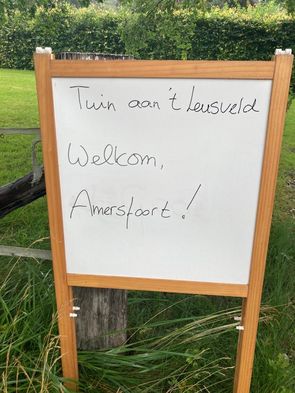 Tuin aan 't Leusveld
Welkom,
Amersfoort!